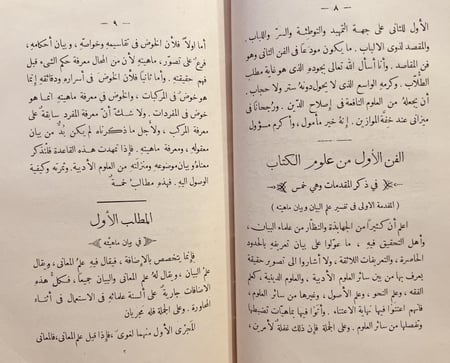 — ٨ —
الأول للثانى على جهة التمهيد والتوطئة والسرّ واللباب
والمقصد لذوى الالباب . ما يكون مودعًا فى الفن الثانى وهو
المقصد . وأنا أسأل الله تعالى بجوده الذى هو غاية مطلب
الطلّاب . وكرمه الواسع الذى لا يحول دونه ستر ولا حجاب .
أن يجعله من العلوم النافعة فى إصلاح الدّين . ورجحانا فى
ميزانى عند خفّة الموازين . إنه خير مأمول ، وأكرم مسؤول
الفن الأول من علوم الكتاب
فى ذكر المقدمات وهى خمس
( المقدمة الاولى فى تفسير علم البيان وبيان ماهيته )
اعلم أن كثيرًا من الجهابذة والنظار من علماء البيان ،
وأهل التحقيق فيه ، ما عوّلوا على بيان تعريفه بالحدود
الحاصرة ، والتعريفات اللائقة ، ولا أشاروا الى تصوير حقيقة
يعرف بها من بين سائر العلوم الأدبية ، والعلوم الدينية ، كعلم
الفقه ، وعلم النحو ، وعلم الأصول ، وغيرها من سائر العلوم ،
فانهم اعتنوا فيها نهاية الاعتناء . وأتوا فيها بماهيات تضبطها
وتفصلها من سائر العلوم . وعلى الجملة فإن ذلك غفلة لأمرين ،
— ٩ —
أما أولاً فلأن الخوض فى تقاسيمه وخواصّه ، وبيان أحكامه ،
فرع على تصوّر ، ماهيته لأن من المحال معرفة حكم الشىء قبل
فهم حقيقته . وأما ثانيًا فلأن الخوض فى أسراره ودقائقه إنما
هو خوض فى المركبات ، والخوض فى معرفة ماهيته إنما هو
خوض فى المفردات . ولا شك أن معرفة المفرد سابقة على
معرفة المركب ، ولأجل ما ذكرناه لم يكن بدّ من بيان
معقوله ، ومعرفة ماهيته . فإذا تمهدت هذه القاعدة فلنذكر
معناه وبيان موضوعه ومنزلته من العلوم الأدبية . وثمرته وكيفية
الوصول اليه . فهذه مطالب خمسة
المطلب الأول
فى بيان ماهيته
فإنما يتخصص بالإضافة ، فيقال فيه علم المعانى ، ويقال
علم البيان ، ويقال له علم المعانى والبيان جميعًا ، فكل هذه
الاضافات جارية على ألسنة علمائه فى الاستعمال فى أثناء
المحاورة . وعلى الجملة فله مجريان
المجرى الأول منهما لغوى فإذا قيل علم المعانى ، فالمعانى